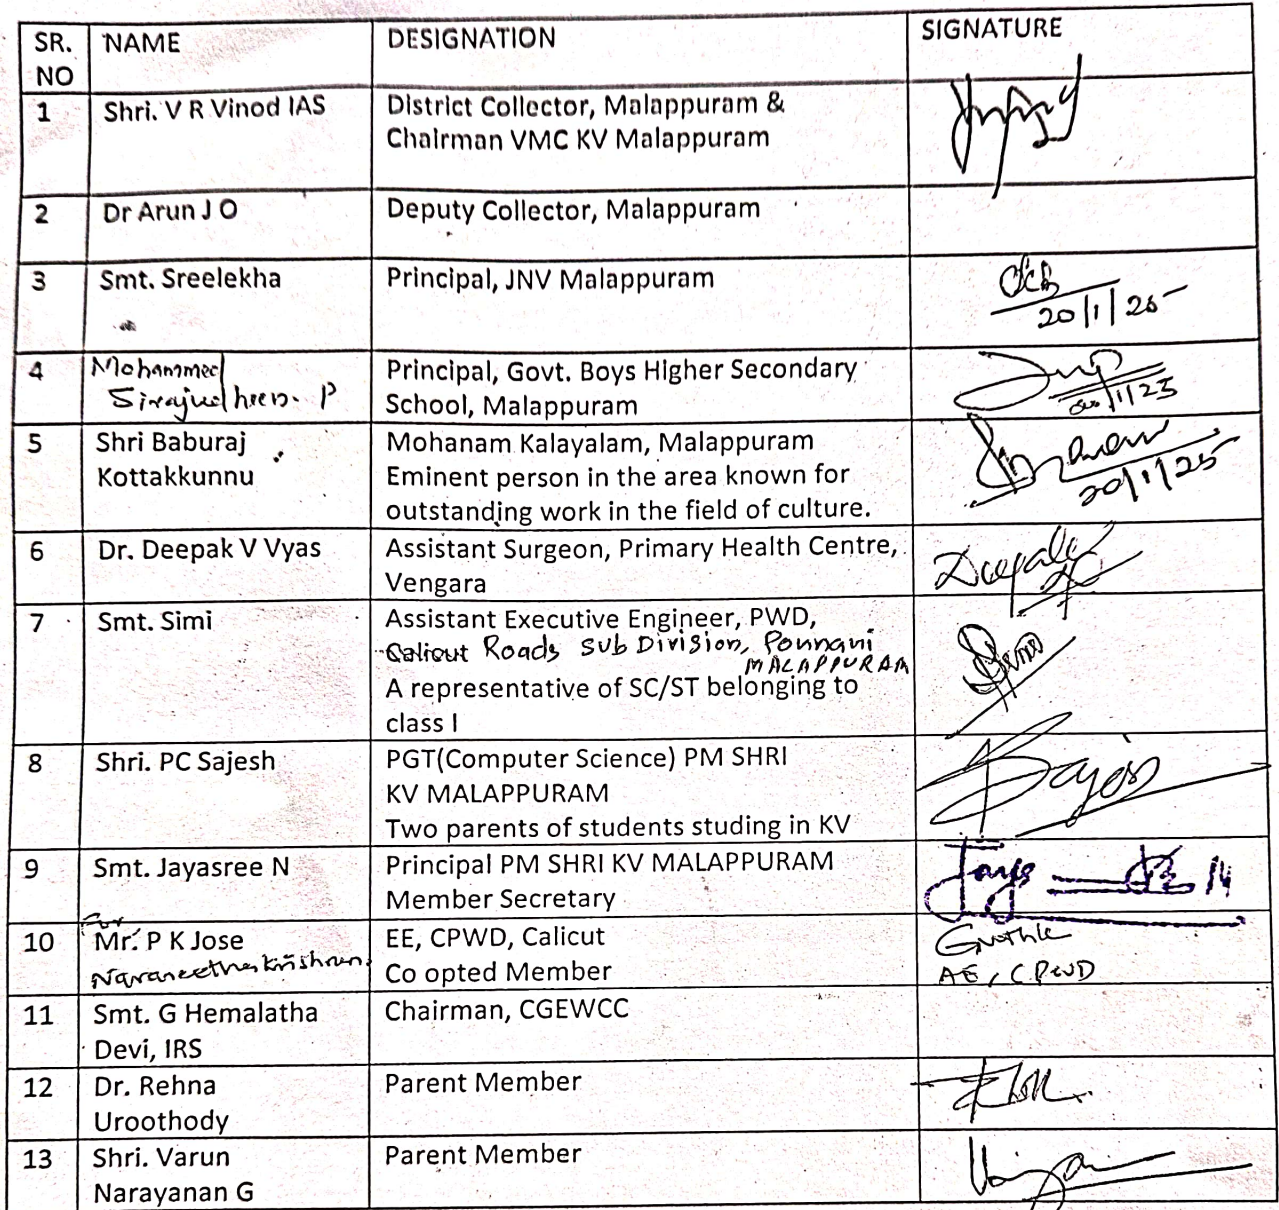 SR. NO NAME DESIGNATION SIGNATURE
1 Shri. V R Vinod IAS District Collector, Malappuram &
Chairman VMC KV Malappuram
2 Dr Arun J O Deputy Collector, Malappuram
3 Smt. Sreelekha Principal, JNV Malappuram
20/1/25
4 Mohammed Principal, Govt. Boys Higher Secondary
Sirajudheen. P School, Malappuram
20/1/25
5 Shri Baburaj Mohanam Kalayalam, Malappuram
Kottakkunnu Eminent person in the area known for
20/1/25
outstanding work in the field of culture.
6 Dr. Deepak V Vyas Assistant Surgeon, Primary Health Centre, Deepak
Vengara
7 Smt. Simi Assistant Executive Engineer, PWD,
Calicut Roads Sub Division, Ponnani
MALAPPURAM
A representative of SC/ST belonging to
class I
8 Shri. PC Sajesh PGT(Computer Science) PM SHRI
KV MALAPPURAM
Two parents of students studing in KV
9 Smt. Jayasree N Principal PM SHRI KV MALAPPURAM
Member Secretary
For
10 Mr. P K Jose EE, CPWD, Calicut
Navaneetha krishnan. Co opted Member AE, CPWD
11 Smt. G Hemalatha Chairman, CGEWCC
Devi, IRS
12 Dr. Rehna Parent Member
Uroothody
13 Shri. Varun Parent Member
Narayanan G